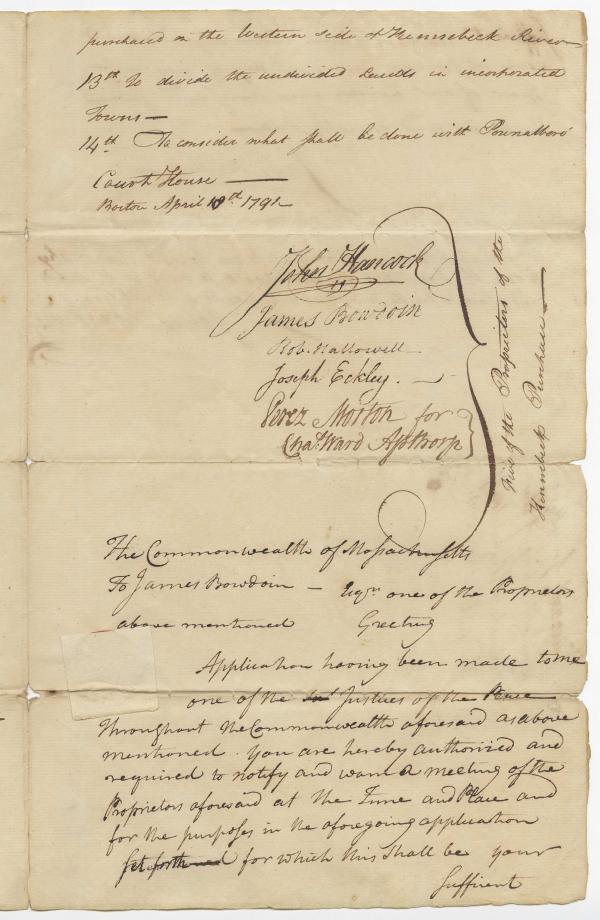 purchased on the Western side of Kennebeck River
13th To divide the undivided Lands in incorporated
Towns —
14th To consider what shall be done with Pownalboro'
Court House —
Boston April 10th 1791 —
John Hancock
James Bowdoin
Rob. Hallowell
Joseph Eckley.
Perez Morton for
Chas. Ward Apthorp
five of the Proprietors of the
Kennebeck Purchase —
The Commonwealth of Massachusetts
To James Bowdoin — Esqr. one of the Proprietors
above mentioned Greeting
Application having been made to me
one of the Justices of the Peace
throughout the Commonwealth aforesaid as above
mentioned. You are hereby authorized and
required to notify and warn a meeting of the
Proprietors aforesaid at the Time and Place and
for the purposes in the aforegoing application
set forth for which this shall be your
Suffient